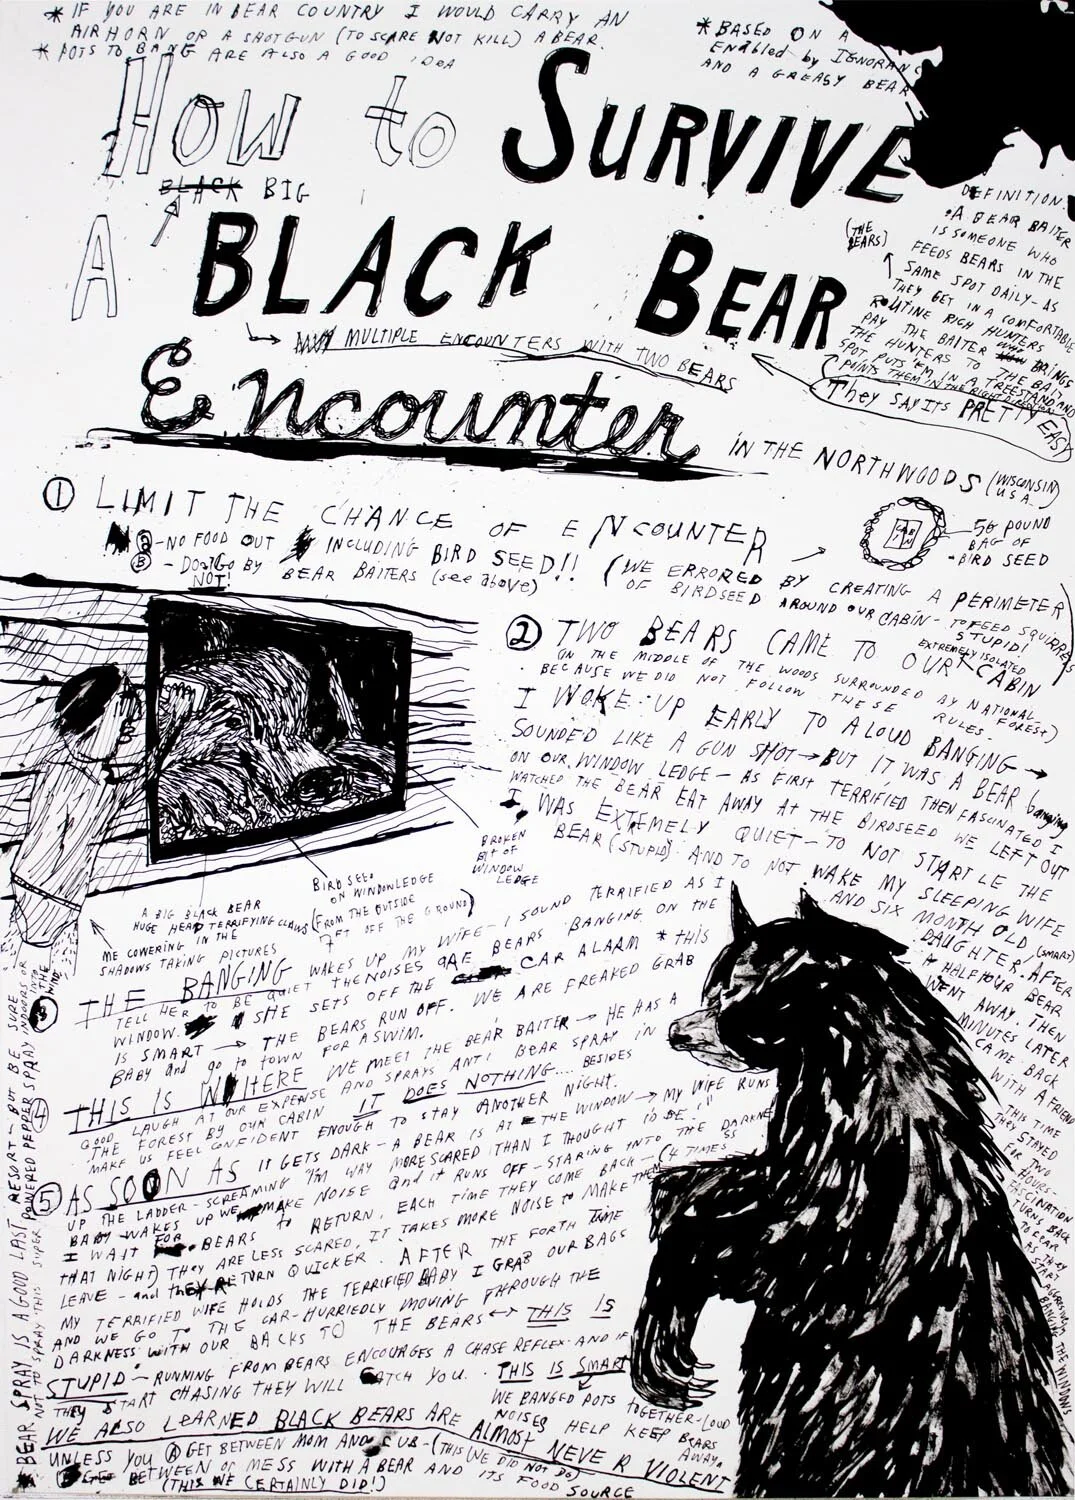 * IF YOU ARE IN BEAR COUNTRY I WOULD CARRY AN
AIRHORN OR A SHOTGUN (TO SCARE NOT KILL) A BEAR.
* POTS TO BANG ARE ALSO A GOOD IDEA
* BASED ON A
ENabled by IGNORANC
AND A GREASY BEAR
HOW to SURVIVE
BLACK BIG
A BLACK BEAR
MULTIPLE ENCOUNTERS WITH TWO BEARS
Encounter
IN THE NORTHWOODS (WISCONSIN)
U.S.A.
DEFINITION:
A BEAR BAITER
IS SOMEONE WHO
FEEDS BEARS IN THE
SAME SPOT DAILY - AS
(THE BEARS)
THEY GET IN A COMFORTABLE
ROUTINE RICH HUNTERS
PAY THE BAITER WHO BRINGS
THE HUNTERS TO THE BAIT
SPOT PUTS 'EM IN A TREESTAND AND
POINTS THEM IN THE RIGHT DIRECTION
They SAY ITS PRETTY EASY
① LIMIT THE CHANCE OF ENCOUNTER
Ⓐ - NO FOOD OUT INCLUDING BIRD SEED!!
Ⓑ - DO NOT! Go BY BEAR BAITERS (see above)
(WE ERRORED BY CREATING A PERIMETER
OF BIRDSEED AROUND OUR CABIN - TO FEED SQUIRRELS
STUPID!
50 POUND
BAG OF
BIRD SEED
② TWO BEARS CAME TO OUR CABIN
EXTREMELY ISOLATED
(IN THE MIDDLE OF THE WOODS SURROUNDED BY NATIONAL FOREST)
BECAUSE WE DID NOT FOLLOW THESE RULES.
I WOKE UP EARLY TO A LOUD BANGING →
SOUNDED LIKE A GUN SHOT → BUT IT WAS A BEAR banging
ON OUR WINDOW LEDGE - AS FIRST TERRIFIED THEN FASCINATED I
WATCHED THE BEAR EAT AWAY AT THE BIRDSEED WE LEFT OUT
I WAS EXTEMELY QUIET - TO NOT STARTLE THE
BEAR (STUPID) AND TO NOT WAKE MY SLEEPING WIFE
AND SIX MONTH OLD (SMART)
DAUGHTER. AFTER
A HALF HOUR BEAR
WENT AWAY. THEN
MINUTES LATER
CAME BACK
WITH A FRIEND
THIS TIME
THEY STAYED
FOR TWO
HOURS -
FASCINATION
TURNS BACK
TO FEAR
AS THEY
START
AGGRESSIVELY
BANGING
THE WINDOWS
BROKEN
BIT OF
WINDOW
LEDGE
BIRD SEED
ON WINDOWLEDGE
(FROM THE OUTSIDE
7FT OFF THE GROUND)
A BIG BLACK BEAR
HUGE HEAD TERRIFYING CLAWS
ME COWERING IN THE
SHADOWS TAKING PICTURES
③ THE BANGING WAKES UP MY WIFE - I SOUND TERRIFIED AS I
TELL HER TO BE QUIET THE NOISES ARE BEARS BANGING ON THE
WINDOW. SHE SETS OFF THE CAR ALARM * THIS
IS SMART → THE BEARS RUN OFF. WE ARE FREAKED GRAB
BABY and go to town FOR A SWIM.
④ THIS IS WHERE WE MEET THE BEAR BAITER → HE HAS A
GOOD LAUGH AT OUR EXPENSE AND SPRAYS ANTI BEAR SPRAY IN
THE FOREST BY OUR CABIN IT DOES NOTHING.... BESIDES
MAKE US FEEL CONFIDENT ENOUGH TO STAY ANOTHER NIGHT.
⑤ AS SOON AS IT GETS DARK - A BEAR IS AT THE WINDOW → MY WIFE RUNS
UP THE LADDER - SCREAMING I'M WAY MORE SCARED THAN I THOUGHT I'D BE!
BABY WAKES UP WE MAKE NOISE and IT RUNS OFF - STARING INTO THE DARKNESS
I WAIT FOR BEARS to RETURN, EACH TIME THEY COME BACK - (4 TIMES
THAT NIGHT) THEY ARE LESS SCARED, IT TAKES MORE NOISE TO MAKE THEM
LEAVE - and they RETURN QUICKER. AFTER THE FORTH TIME
MY TERRIFIED WIFE HOLDS THE TERRIFIED BABY I GRAB OUR BAGS
AND WE GO TO THE CAR - HURRIEDLY MOVING THROUGH THE
DARKNESS WITH OUR BACKS TO THE BEARS ↔ THIS IS
STUPID - RUNNING FROM BEARS ENCOURAGES A CHASE REFLEX - AND IF
THEY START CHASING THEY WILL CATCH YOU. THIS IS SMART
WE BANGED POTS TOGETHER - LOUD
NOISES HELP KEEP BEARS
AWAY.
WE ALSO LEARNED BLACK BEARS ARE ALMOST NEVER VIOLENT
UNLESS YOU Ⓐ GET BETWEEN MOM AND CUB - (THIS WE DID NOT DO)
Ⓑ GET BETWEEN OR MESS WITH A BEAR AND ITS FOOD SOURCE
(THIS WE CERTAINLY DID!)
* BEAR SPRAY IS A GOOD LAST RESORT - BUT BE SURE
NOT TO SPRAY THIS SUPER POWERED PEPPER SPRAY INDOORS OR INTO THE WIND